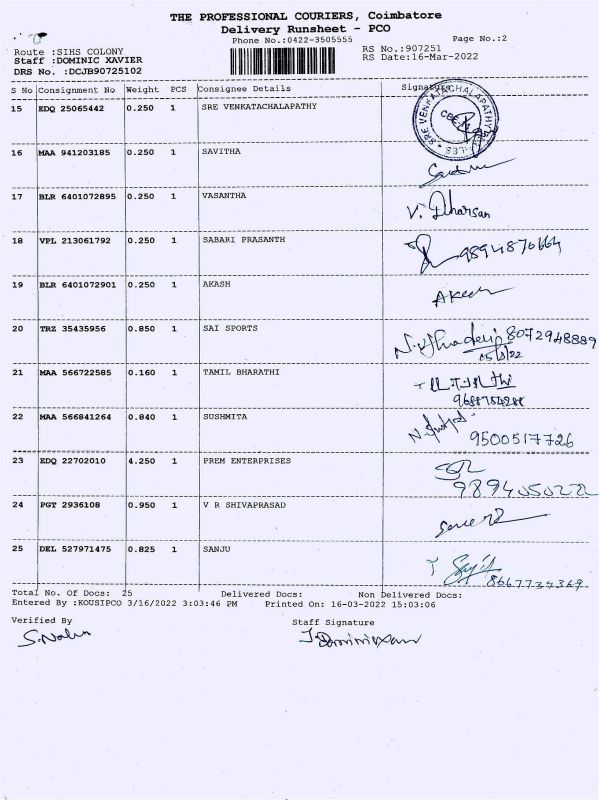 THE PROFESSIONAL COURIERS, Coimbatore
Delivery Runsheet - PCO
Phone No.:0422-3505555
Page No.:2
Route :SIHS COLONY
Staff :DOMINIC XAVIER
DRS No. :DCJB90725102
RS No.:907251
RS Date:16-Mar-2022
S No Consignment No Weight PCS Consignee Details Signature
15 EDQ 25065442 0.250 1 SRE VENKATACHALAPATHY
SRE VENKATACHALAPATHY
CBE
16 MAA 941203185 0.250 1 SAVITHA
17 BLR 6401072895 0.250 1 VASANTHA V. Dharsan
18 VPL 213061792 0.250 1 SABARI PRASANTH 9894870664
19 BLR 6401072901 0.250 1 AKASH Akash
20 TRZ 35435956 0.850 1 SAI SPORTS 8072948889
21 MAA 566722585 0.160 1 TAMIL BHARATHI
22 MAA 566841264 0.840 1 SUSHMITA 9500517726
23 EDQ 22702010 4.250 1 PREM ENTERPRISES
24 PGT 2936108 0.950 1 V R SHIVAPRASAD
25 DEL 527971475 0.825 1 SANJU 8667734369
Total No. Of Docs: 25 Delivered Docs: Non Delivered Docs:
Entered By :KOUSIPCO 3/16/2022 3:03:46 PM Printed On: 16-03-2022 15:03:06
Verified By Staff Signature